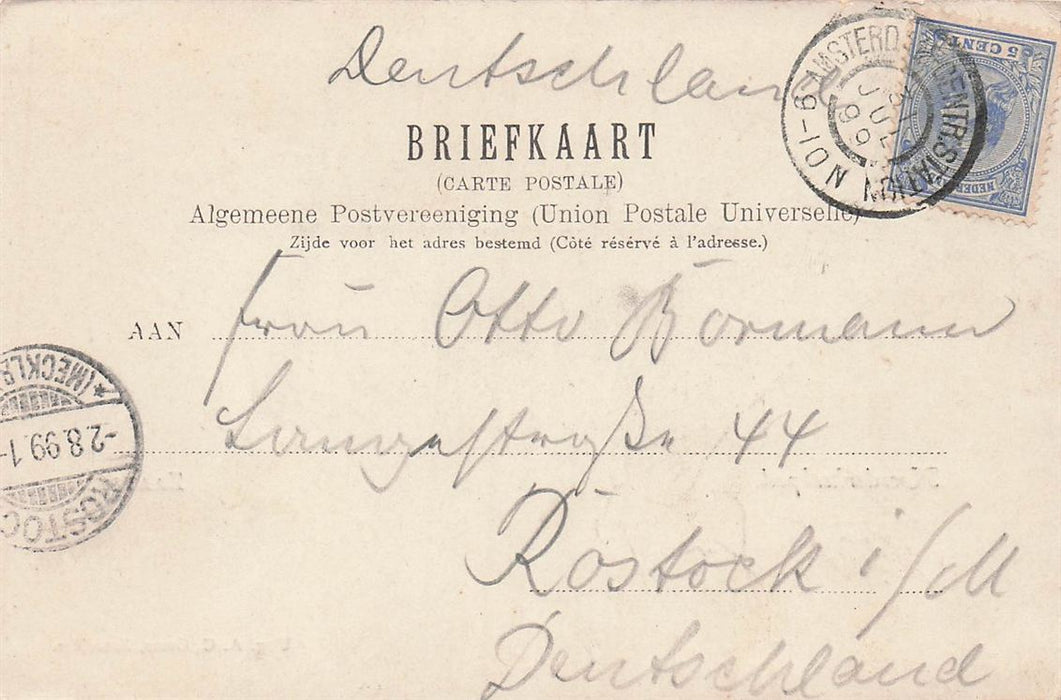 Deutschland
5 CENT
NEDER
AMSTERDAM CENTR. STATION
9-10N
31 JUL 99
BRIEFKAART
(CARTE POSTALE)
Algemeene Postvereeniging (Union Postale Universelle)
Zijde voor het adres bestemd (Côté résérvé à l'adresse.)
AAN Frau Otto Bormann
Langestraße 44
Rostock i/M
Deutschland
* (MECKLB
-2.8.99.1-
ROSTOC